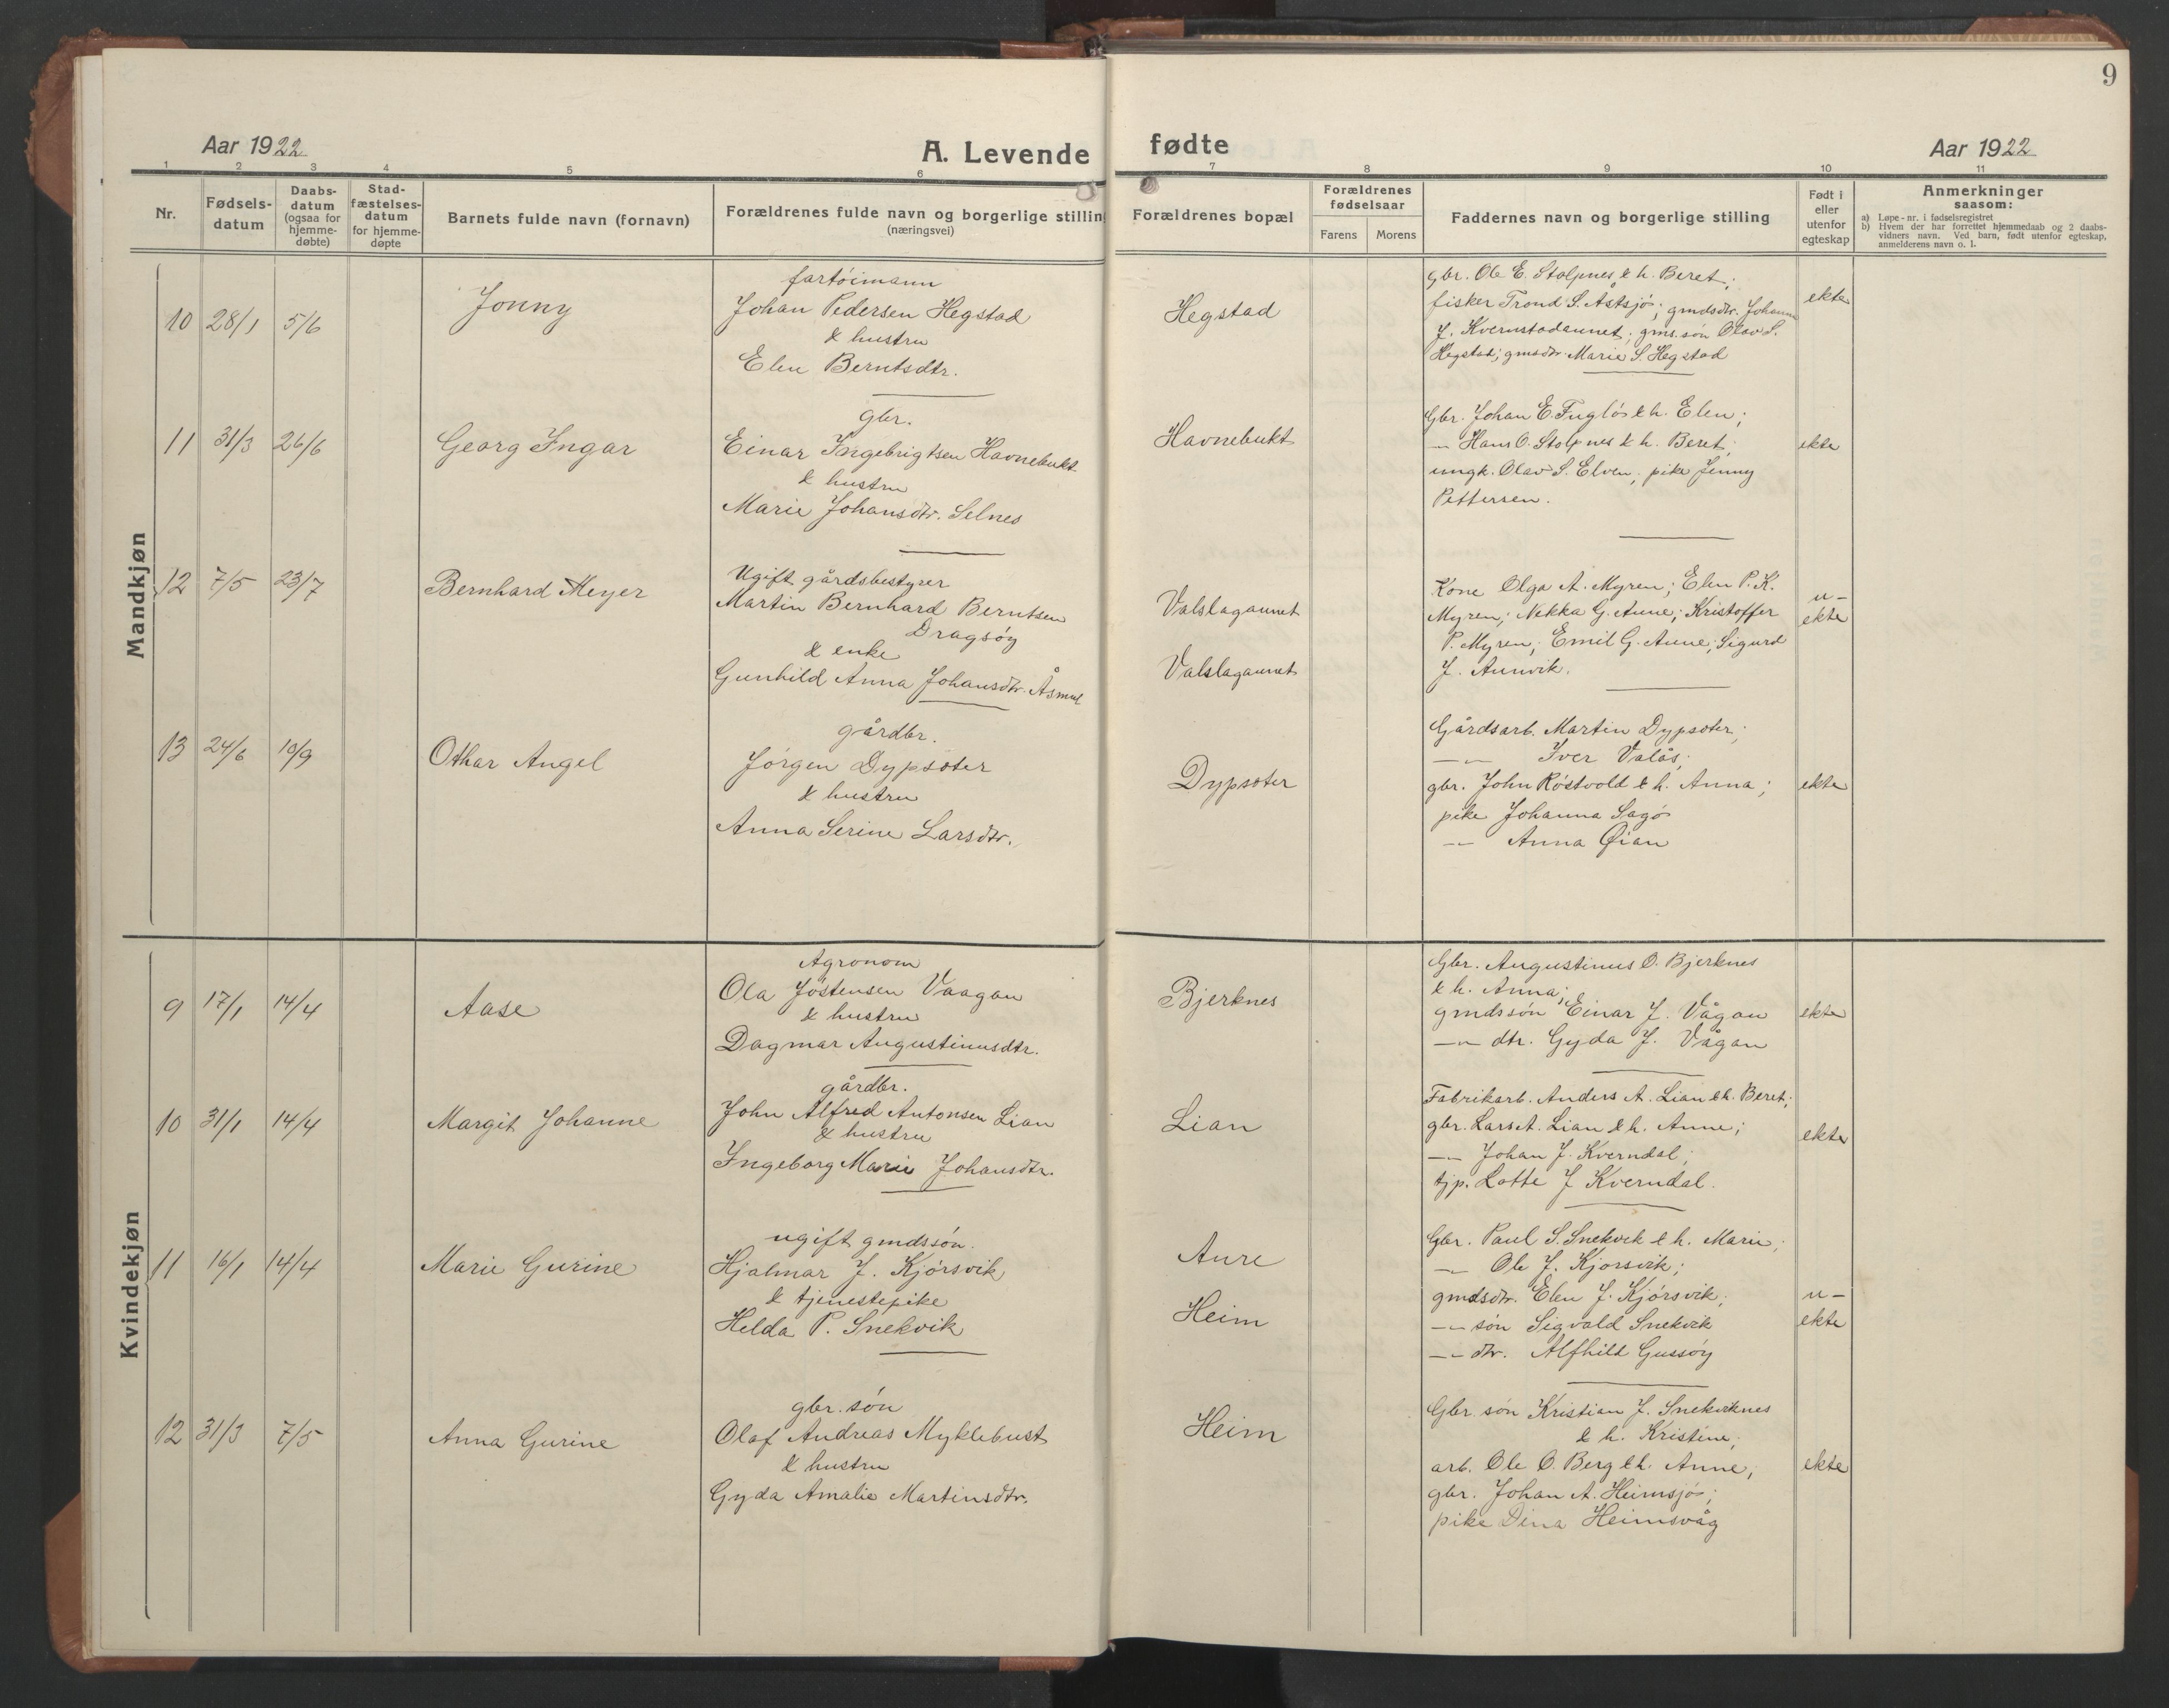 9
Aar 1922
A. Levende fødte
Aar 1922
1 2 3 4 5 6 7 8 9 10 11
Nr.
Fødsels-
datum
Daabs-
datum
(ogsaa for
hjemme-
døbte)
Stad-
fæstelses-
datum
for hjemme-
døpte
Barnets fulde navn (fornavn)
Forældrenes fulde navn og borgerlige stilling
(næringsvei)
Forældrenes bopæl
Forældrenes
fødselsaar
Farens Morens
Faddernes navn og borgerlige stilling
Født i
eller
utenfor
egteskap
Anmerkninger
saasom:
a) Løpe-nr. i fødselsregistret
b) Hvem der har forrettet hjemmedaab og 2 daabs-
vidners navn. Ved barn, født utenfor egteskap,
anmelderens navn o. l.
Mandkjøn
10 28/1 5/6
Jonny
fartøimann
Johan Pedersen Hegstad
& hustru
Elen Berntsdtr.
Hegstad
gbr. Ole E. Stolpnes & h. Beret;
fisker Trond S. Astsjø; gmdsdtr. Johanna
J. Kvernstadaunet; gms.søn Olav S.
Hegstad; gmsdtr. Marie S. Hegstad
ekte
11 31/3 26/6
Georg Ingar
gbr.
Einar Ingebrigtsen Havnebukt
& hustru
Marie Johansdtr. Selnes
Havnebukt
Gbr. Johan E. Fugløs & h. Elen;
–"– Hans O. Stolpnes & h. Beret;
ungk. Olav S. Elven, pike Jenny
Pettersen.
ekte
12 7/5 23/7
Bernhard Meyer
Ugift gårdsbestyrer
Martin Bernhard Berntsen
Dragsøy
& enke
Gunhild Anna Johansdtr. Åsmul
Valslagaunet
Valslagaunet
Kone Olga A. Myren; Elen P. K.
Myren; Nekka G. Aune; Kristoffer
P. Myren; Emil G. Aune; Sigurd
J. Aunvik.
u-
ekte
13 24/6 10/9
Othar Angel
gårdbr.
Jørgen Dypseter
& hustru
Anna Serine Larsdtr.
Dypseter
Gårdsarb. Martin Dypseter;
–"– Iver Valås;
gbr. John Røstvold & h. Anna;
pike Johanna Sagø
–"– Anna Øian
ekte
Kvindekjøn
9 17/1 14/4
Aase
Agronom
Ola Jostensen Vaagan
& hustru
Dagmar Augustinusdtr.
Bjerknes
Gbr. Augustinus O. Bjerknes
& h. Anna;
gmdssøn Einar J. Vågan
–"– dtr. Gyda J. Vågan
ekte
10 31/1 14/4
Margit Johanne
gårdbr.
John Alfred Antonsen Lian
& hustru
Ingeborg Marie Johansdtr.
Lian
Fabrikarb. Anders A. Lian & h. Beret;
gbr. Lars A. Lian & h. Anne;
–"– Johan J. Kverndal;
tjp. Lotte J Kverndal.
ekte
11 16/1 14/4
Marie Gurine
ugift gmdssøn.
Hjalmar J. Kjørsvik
& tjenestepike
Helda P. Snekvik
Aure
Heim
Gbr. Paul S. Snekvik & h. Marie;
–"– Ole J. Kjørsvik;
gmdsdtr. Elen J. Kjørsvik;
–"– søn Sigvald Snekvik
–"– dtr. Alfhild Gussøy
u-
ekte
12 31/3 7/5
Anna Gurine
gbr. søn
Olaf Andreas Myklebust
& hustru
Gyda Amalie Martinsdtr.
Heim
Gbr. søn Kristian J. Snekviknes
& h. Kristine;
arb. Ole O. Berg & h. Anne,
gbr. Johan A. Heimsjø;
pike Dina Heimsvåg
ekte